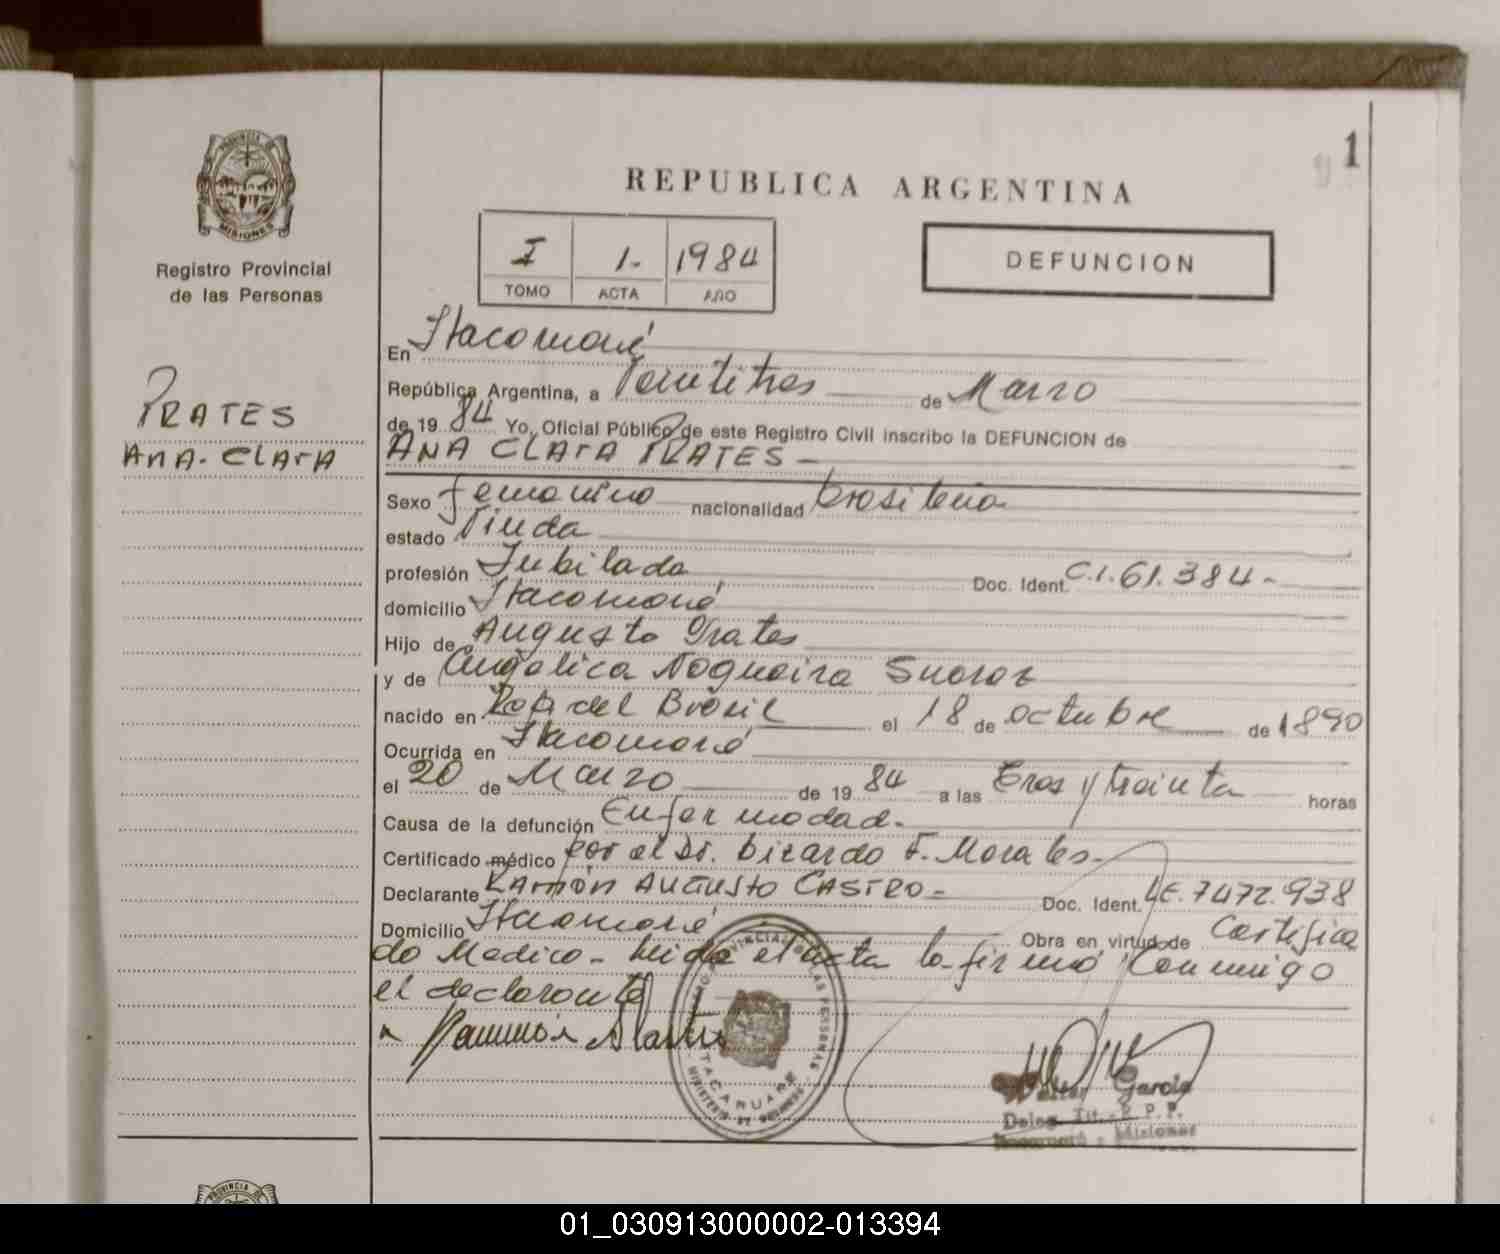 1
PROVINCIA DE
MISIONES
Registro Provincial
de las Personas
REPUBLICA ARGENTINA
I 1. 1984
TOMO ACTA AÑO
DEFUNCION
PRATES
ANA - CLARA
En Itacaruaré
República Argentina, a Veintitres de Marzo
de 19 84 Yo, Oficial Público de este Registro Civil inscribo la DEFUNCION de
ANA CLARA PRATES -
Sexo femenino nacionalidad brasileña
estado Viuda
profesión Jubilada Doc. Ident. C.I. 61.384-
domicilio Itacaruaré
Hijo de Augusto Prates
y de Angelica Nogueira Suarez
nacido en Rep. del Brasil el 18 de octubre de 1890
Ocurrida en Itacaruaré
el 20 de Marzo de 19 84 a las Tres y treinta horas
Causa de la defunción Enfermedad.
Certificado médico por el Dr. Ricardo F. Morales-
Declarante RAMÓN AUGUSTO CASTRO- Doc. Ident. LE. 7472.938
Domicilio Itacaruaré Obra en virtud de Certifica
do Medico - leida el acta la firmó conmigo
el declarante
ITACARUARE
García
Deleg. Tit. R. P. P.
Itacaruaré - Misiones
PROVINCIA DE
01_030913000002-013394